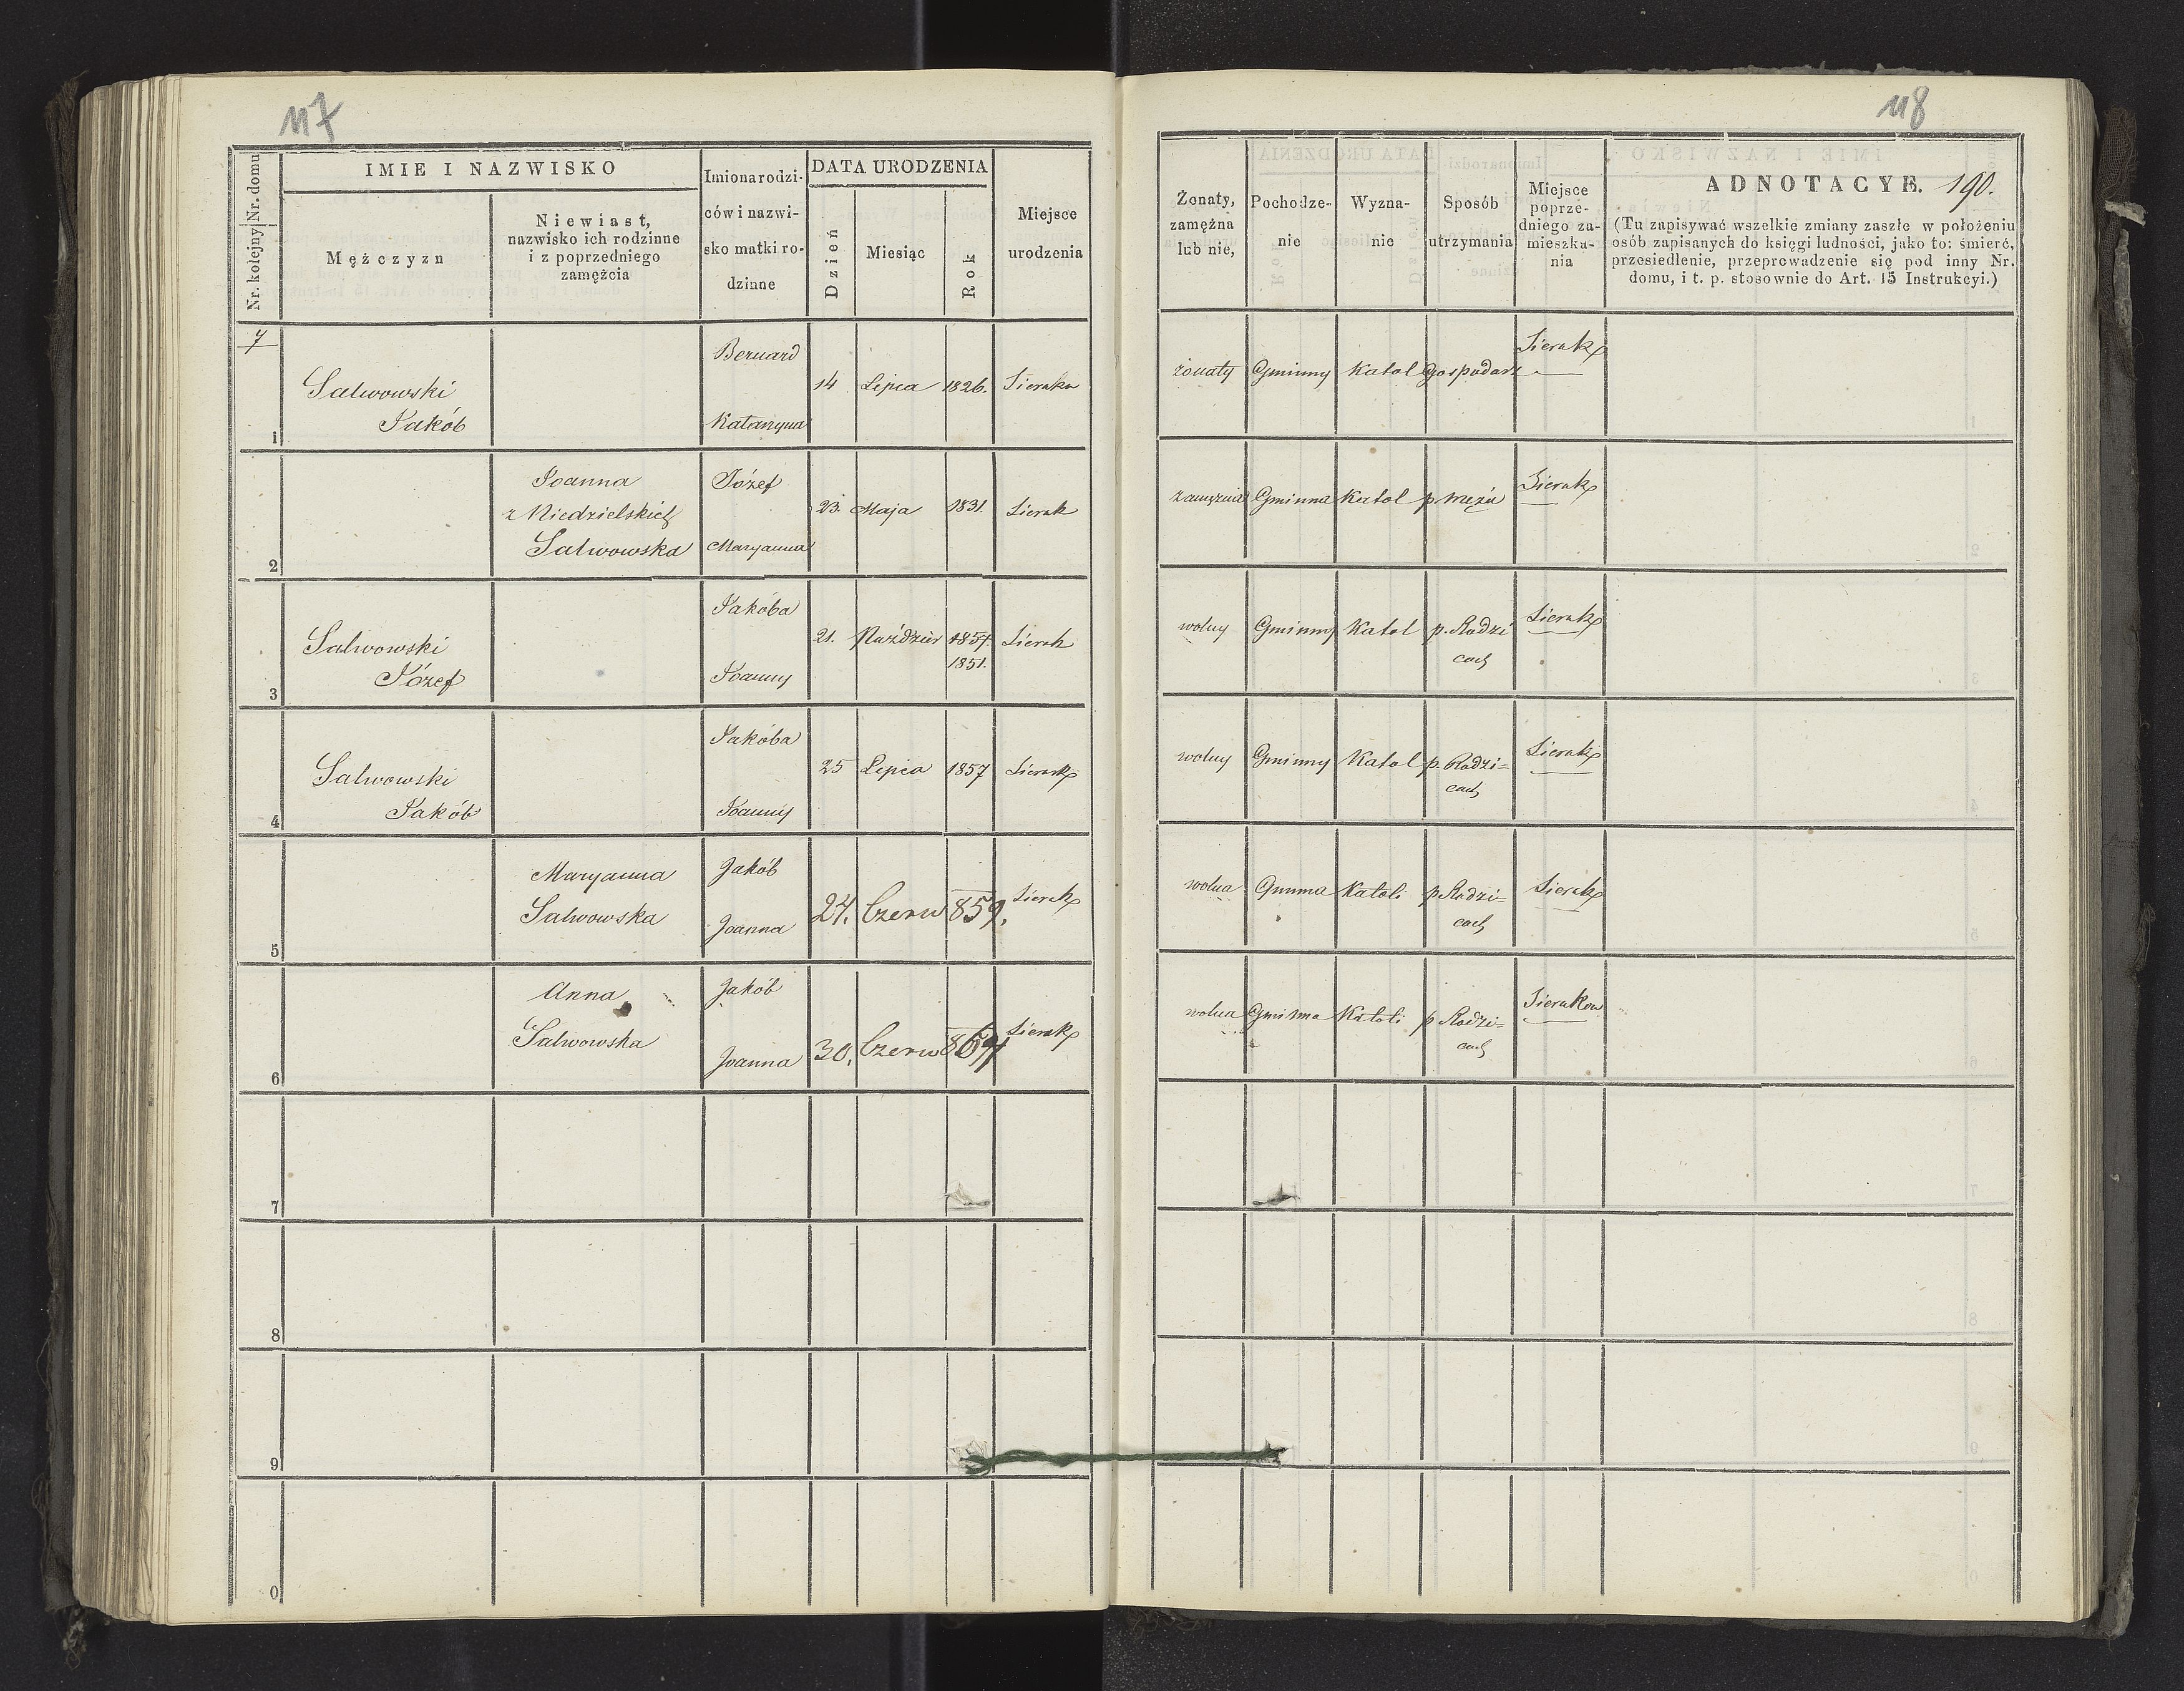 117
Nr. kolejny Nr. domu
IMIE I NAZWISKO
Mężczyzn
Niewiast,
nazwisko ich rodzinne
i z poprzedniego
zamężcia
Imiona rodzi-
ców i nazwi-
sko matki ro-
dzinne
DATA URODZENIA
Dzień
Miesiąc
Rok
Miejsce
urodzenia
7
1
Salwowski
Jakób
Bernard
Katarzyna
14
Lipca
1826.
Sieraków
2
Joanna
z Niedzielskich
Salwowska
Józef
Maryanna
23.
Maja
1831.
Sierak
3
Salwowski
Józef
Jakóba
Joanny
21.
Paździer
1851.
Sierak
4
Salwowski
Jakób
Jakóba
Joanny
25
Lipca
1857
Sierak
5
Maryanna
Salwowska
Jakób
Joanna
24.
Czerw
859.
Sierak
6
Anna
Salwowska
Jakób
Joanna
30.
Czerw
Sierak
7
8
9
0
118
Żonaty,
zamężna
lub nie,
Pochodze-
nie
Wyzna-
nie
Sposób
utrzymania
Miejsce
poprze-
dniego za-
mieszka-
nia
ADNOTACYE. 190.
(Tu zapisywać wszelkie zmiany zaszłe w położeniu
osób zapisanych do księgi ludności, jako to: śmierć,
przesiedlenie, przeprowadzenie się pod inny Nr.
domu, i t. p. stosownie do Art. 15 Instrukcyi.)
żonaty
Gminny
Katol
Gospodarz
Sierak
zamężna
Gminna
Katol
p. mężu
Sierak
wolny
Gminny
Katol
p. Rodzi
cach
Sierak
wolny
Gminny
Katol
p. Rodzi=
cach
Sierak
wolna
Gminna
Katoli
p Rodzi=
cach
Sierak
wolna
Gminna
Katoli
p Rodzi=
cach
Sierakow